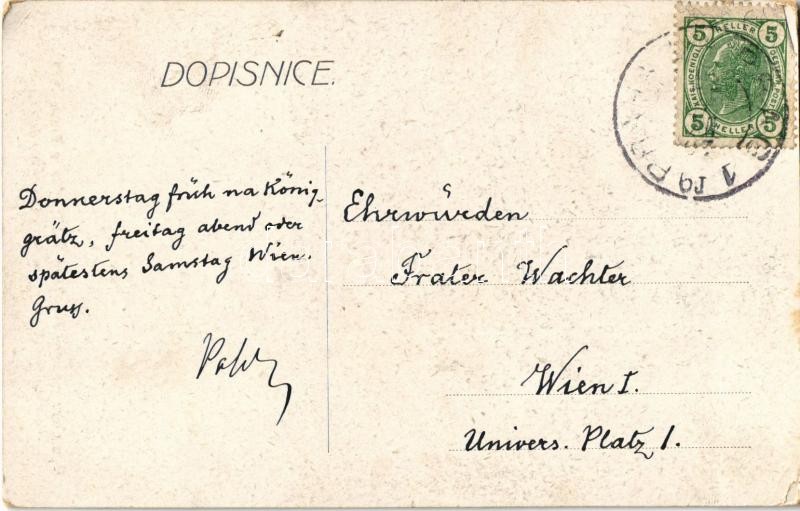 DOPISNICE.
5 HELLER 5
KAIS. KOENIGL. OESTERR. POST
5 HELLER 5
Donnerstag früh na König-
grätz, freitag abend oder
spätestens Samstag Wien.
Gruss.
Ehrwürden
Frater Wachter
Wien I.
Univers. Platz 1.